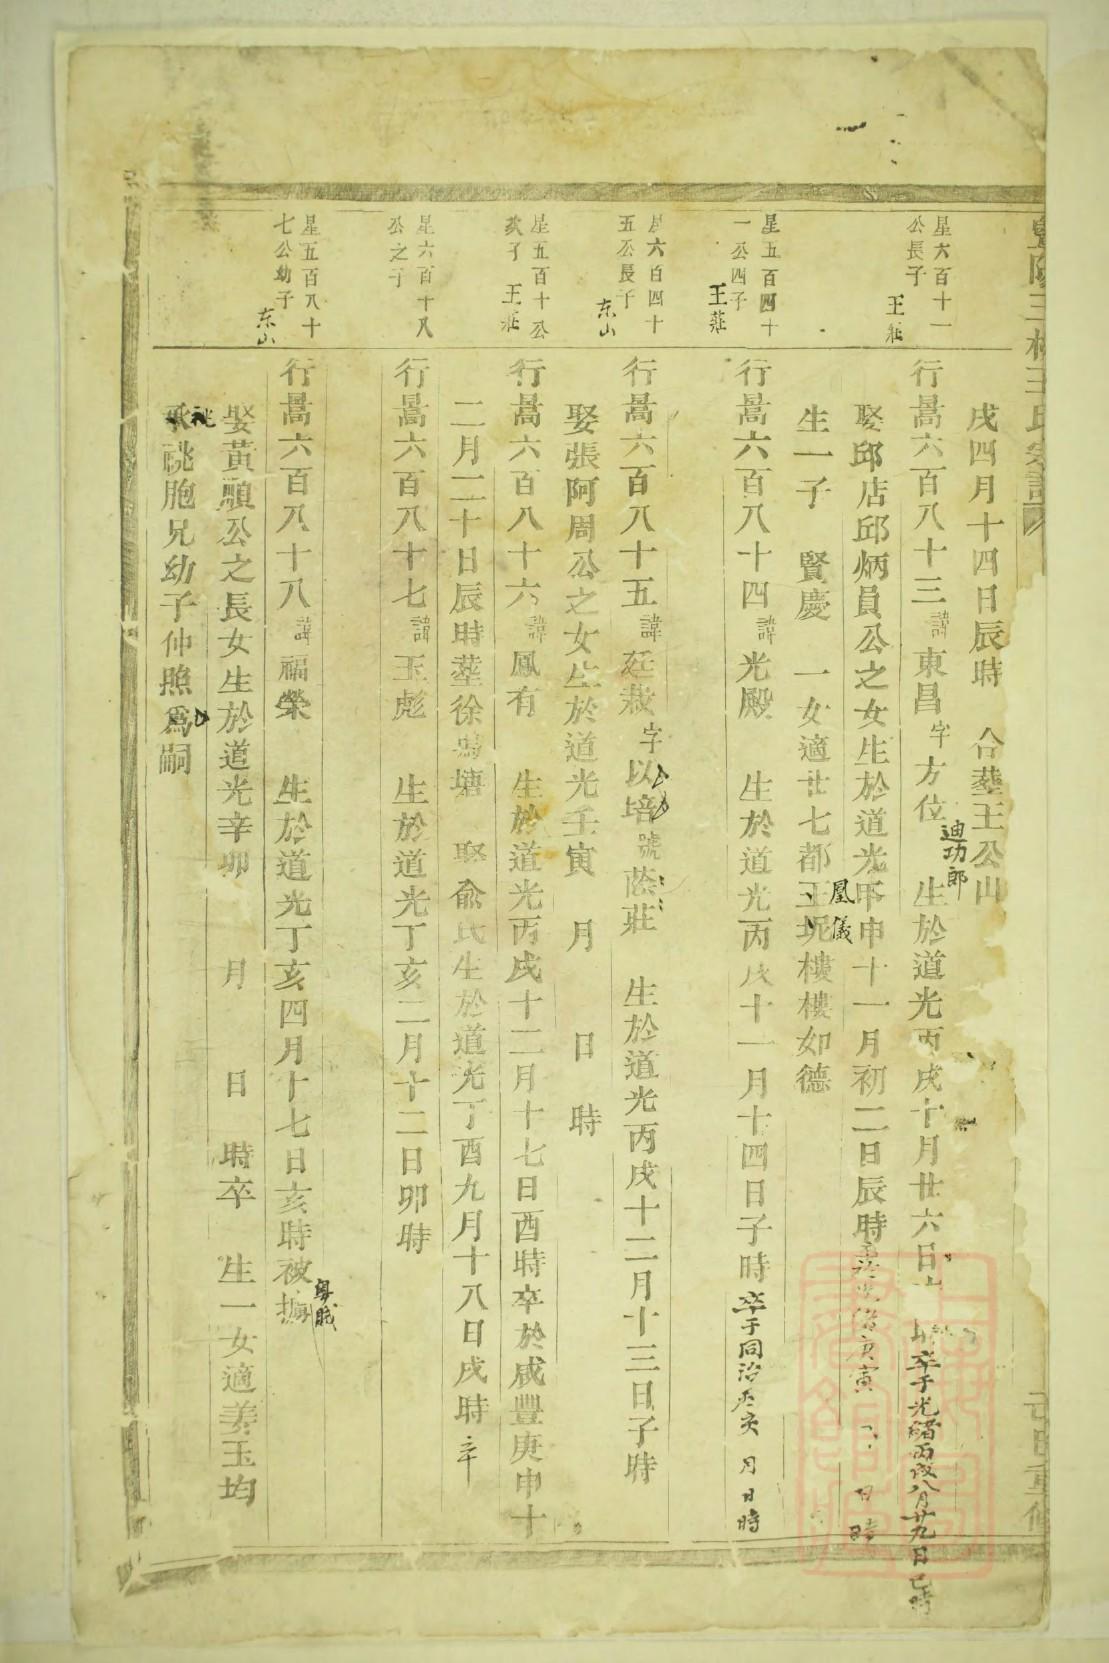 戌四月十四日辰時 合塟王公山
星六百十一
公長子 王莊
行暠六百八十三諱東昌字方位 迪功郎 生於道光丙戌十月廿六日 時卒于光緒丙戌八月廿九日巳時
娶邱店邱炳員公之女生於道光甲申十一月初二日辰時 庚寅 日時
生一子 賢慶 一女適廿七都王坭樓樓如德 鳳儀
星五百四十
一公四子 王莊
行暠六百八十四諱光殿 生於道光丙戌十一月十四日子時卒于同治 亥 月日時
星六百四十
五公長子 东山
行暠六百八十五諱廷栽字以培號蔭莊 生於道光丙戌十二月十三日子時
娶張阿周公之女生於道光壬寅 月 日 時
星五百十公
次子 王莊
行暠六百八十六諱鳳有 生於道光丙戌十二月十七日酉時卒於咸豐庚申十
二月二十日辰時塟徐 塘 娶俞氏生於道光丁酉九月十八日戌時卒
星六百十八
公之子
行暠六百八十七諱玉彪 生於道光丁亥二月十二日卯時
星五百八十
七公幼子 东山
行暠六百八十八諱福榮 生於道光丁亥四月十七日亥時被擄 粵賊
娶黃順公之長女生於道光辛卯 月 日 時卒 生一女適姜玉均
承祧胞兄幼子仲照爲嗣